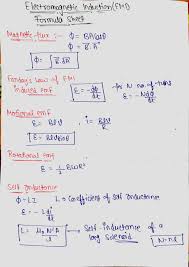 Electromagnetic Induction (EMI)
Formula Sheet
Magnetic flux :- Φ = BA cosθ
Φ = B⃗.A⃗
Φ = ∫B⃗.dA⃗
Faraday's Law of EMI
Induced emf
ε = -dΦ/dt
for N no. of turns
ε = -NdΦ/dt
Motional emf
ε = Bvl
i = Bvl/R
ε = Bvl sinθ
Rotational emf
ε = 1/2 BωR²
Self inductance
Φ = LI L = Coefficient of self inductance
ε = -L di/dt
L = μ₀N²A/l
Self-Inductance of a
long solenoid
N = nl